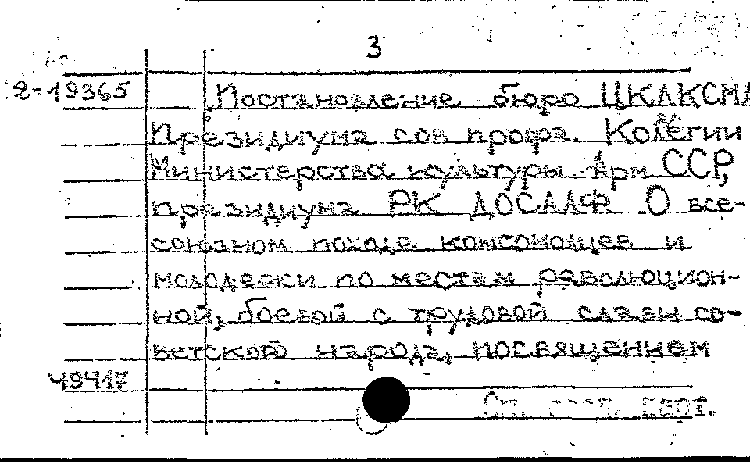 3
2-19365 Постановление бюро ЦКЛКСМА
Президиума сов профа. Колегии
Министерства культуры Арм ССР,
президиума РК ДОСААФ О все-
союзном походе комсомольцев и
молодежи по местам революцион-
ной, боевой и трудовой славы со-
ветского народа, посвященном
49417
См. след. карт.